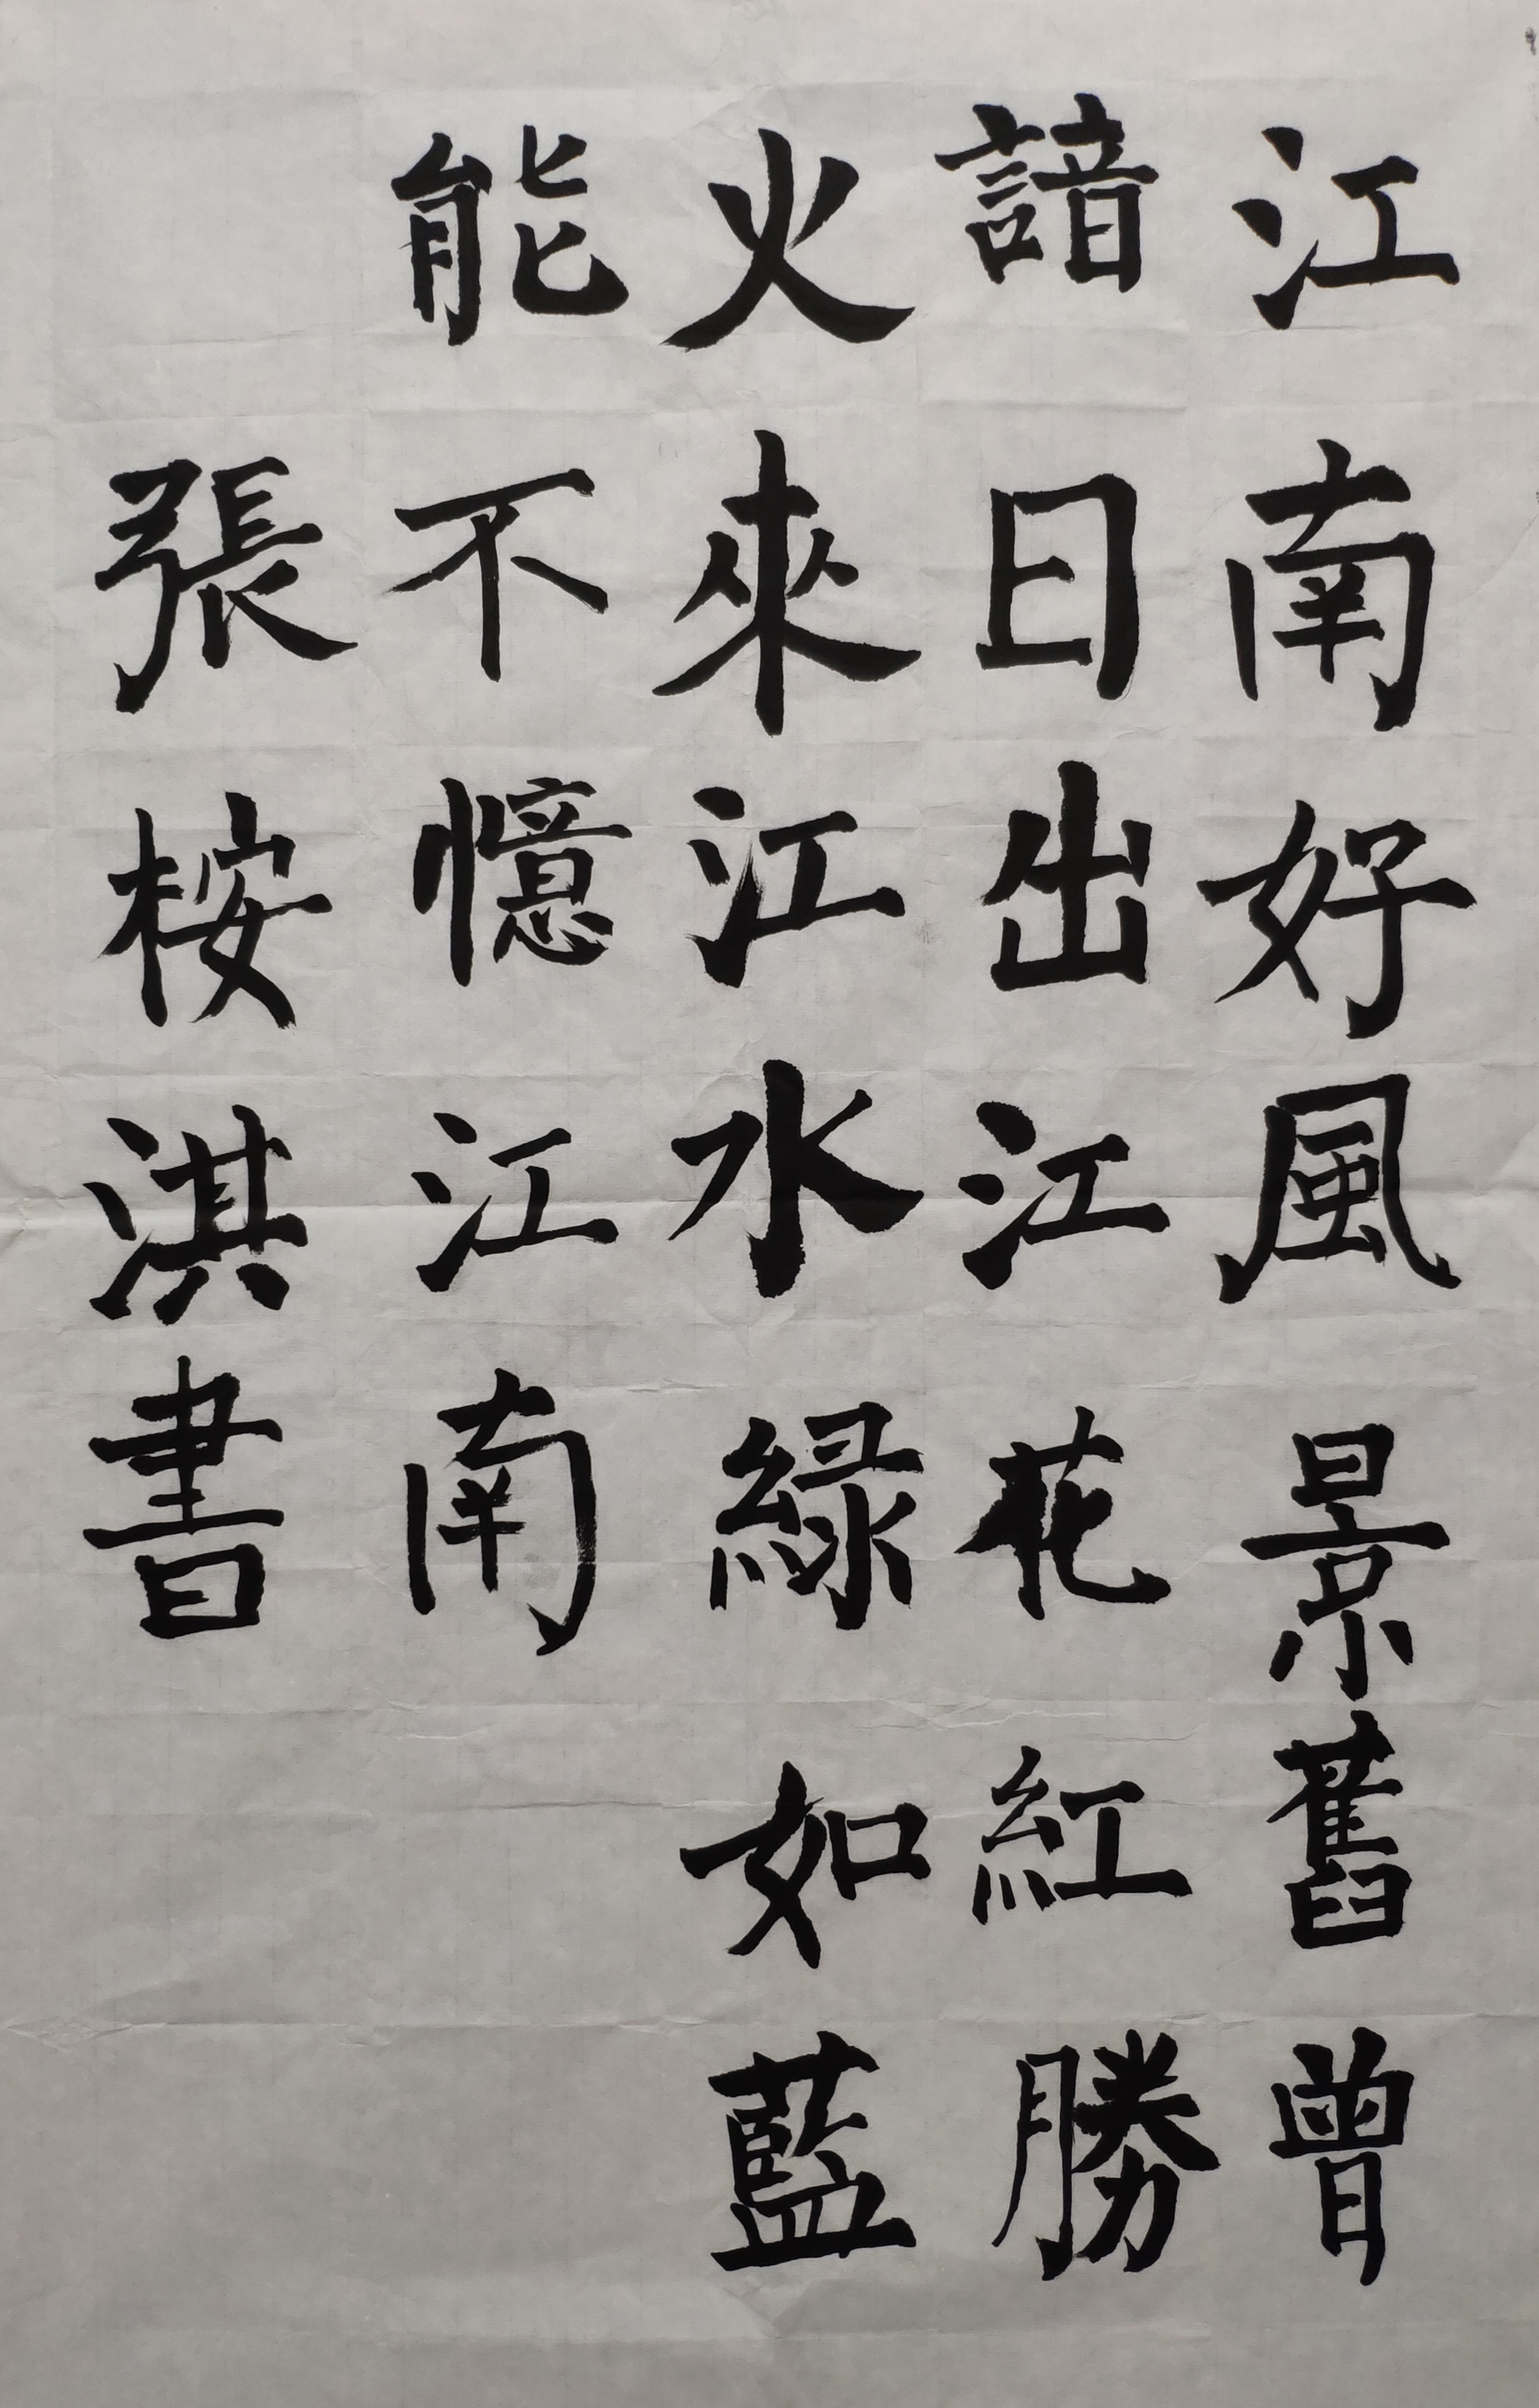 江南好風景舊曾
諳日出江花紅勝
火來江水緑如藍
能不憶江南
張桉淇書